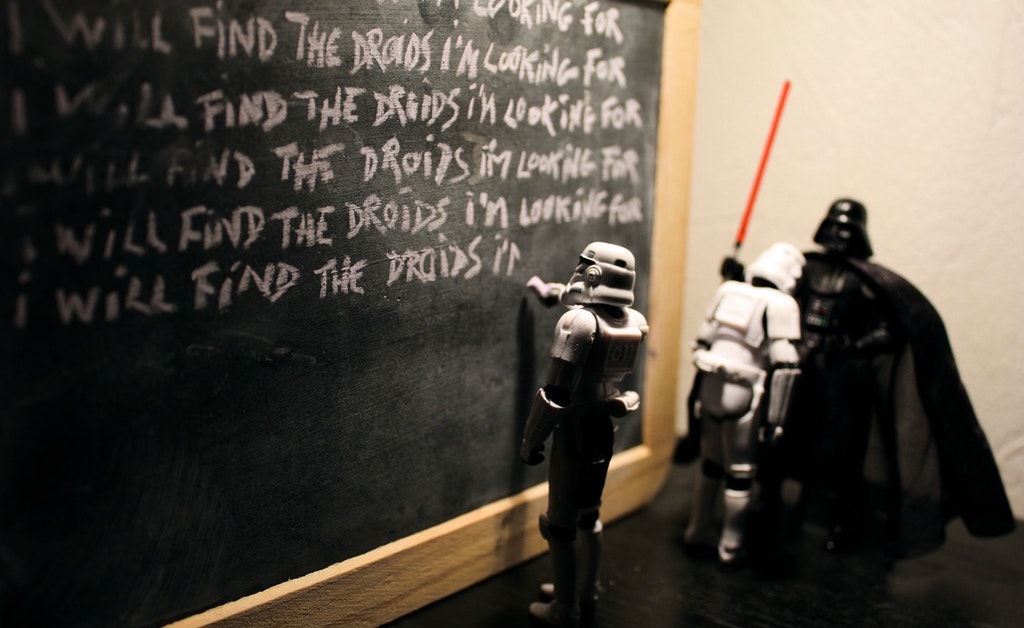 LOOKING FOR
I WILL FIND THE DROIDS I'M LOOKING FOR
I WILL FIND THE DROIDS I'M LOOKING FOR
I WILL FIND THE DROIDS I'M LOOKING FOR
I WILL FIND THE DROIDS I'M LOOKING FOR
I WILL FIND THE DROIDS I'